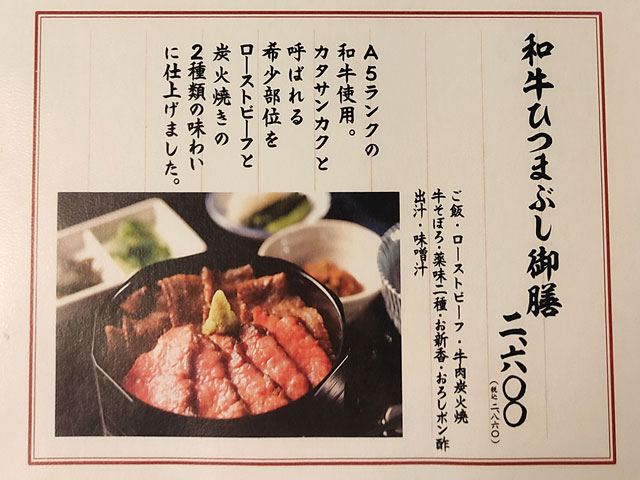 和牛ひつまぶし御膳
二、六〇〇
(税込二、八六〇)
ご飯・ローストビーフ・牛肉炭火焼
牛そぼろ・薬味二種・お新香・おろしポン酢
出汁・味噌汁
A5ランクの
和牛使用。
カタサンカクと
呼ばれる
希少部位を
ローストビーフと
炭火焼きの
2種類の味わい
に仕上げました。